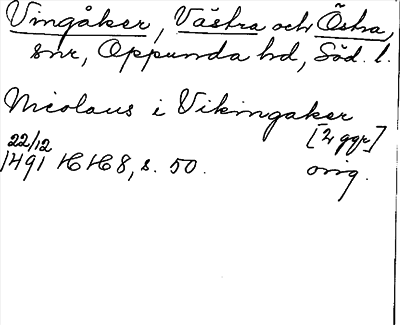 Vingåker, Västra och Östra,
snr, Oppunda hd, Söd. l.
Nicolaus i Vikingaker
[2 ggr]
22/12
1491 HH 8, s. 50. orig.